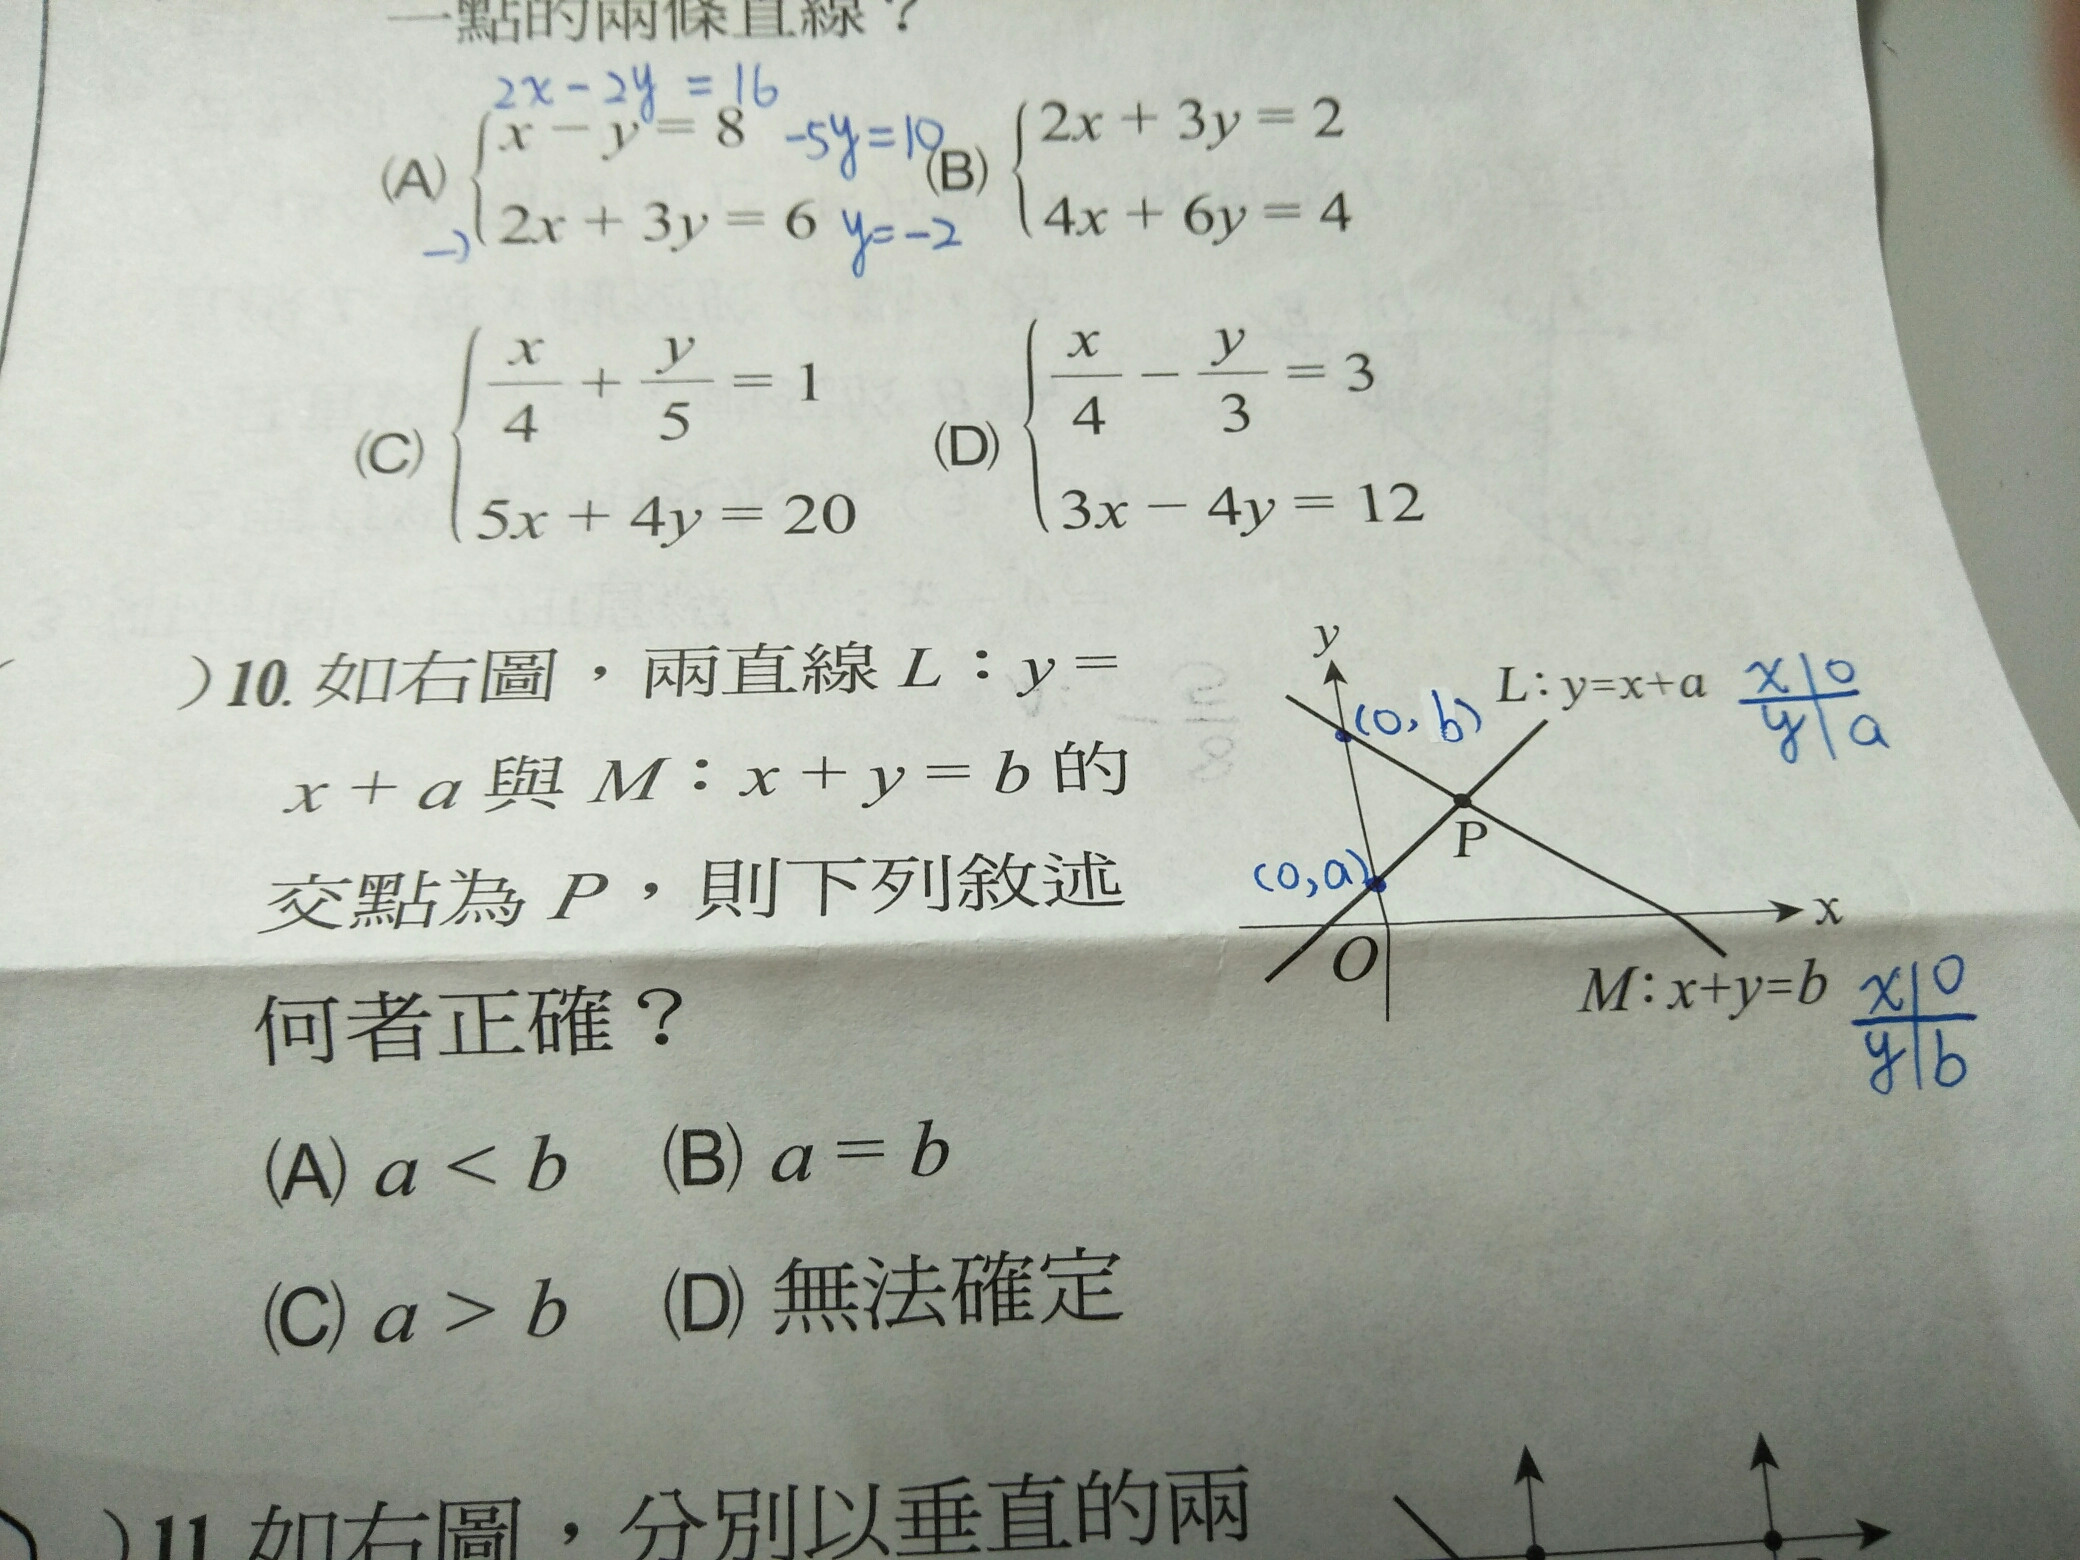 一點的兩條直線？
2x - 2y = 16
(A) { x - y = 8
-5y = 10
-) 2x + 3y = 6
y = -2
(B) { 2x + 3y = 2
4x + 6y = 4
(C) { x/4 + y/5 = 1
5x + 4y = 20
(D) { x/4 - y/3 = 3
3x - 4y = 12
)10. 如右圖，兩直線 L：y =
x + a 與 M：x + y = b 的
交點為 P，則下列敘述
何者正確？
y
(0, b)
L：y=x+a
x | 0
y | a
P
(0, a)
x
O
M：x+y=b
x | 0
y | b
(A) a < b (B) a = b
(C) a > b (D) 無法確定
)11. 如右圖，分別以垂直的兩